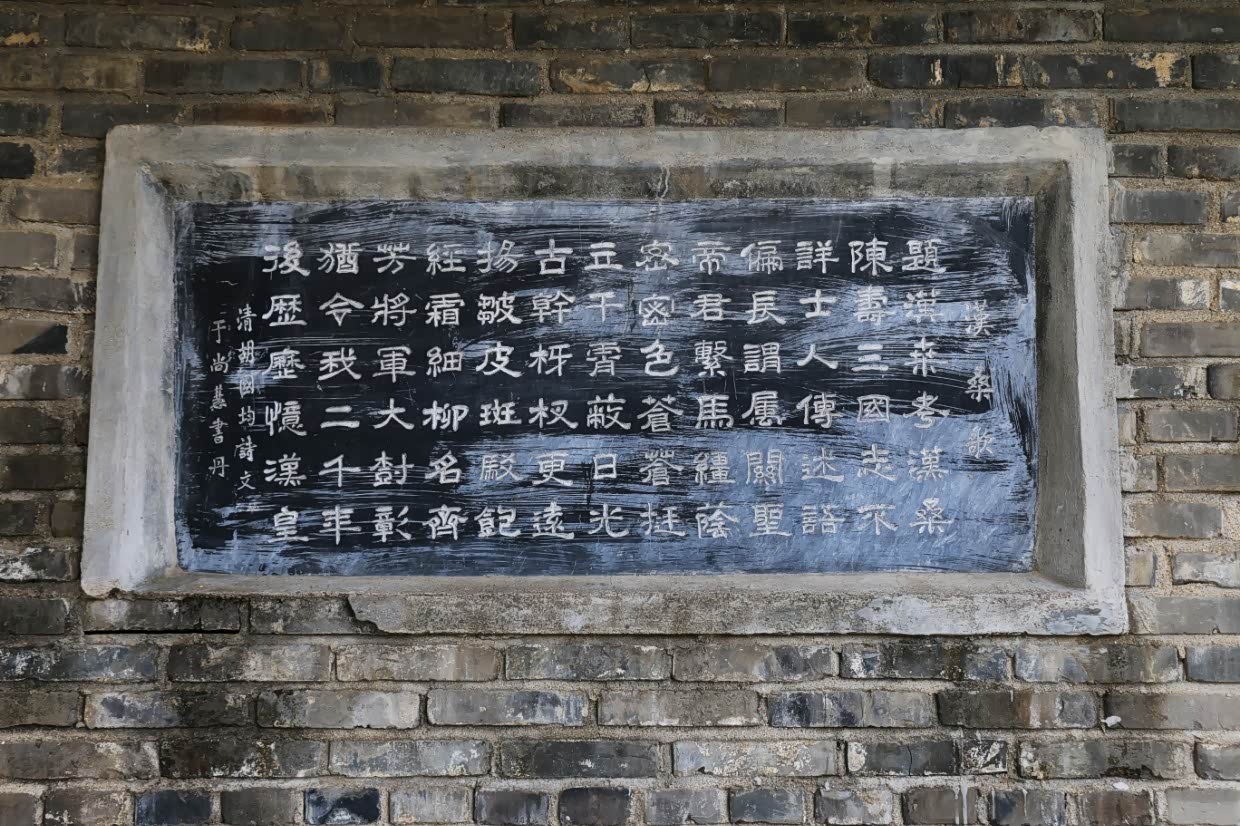 漢桑歌
題漢来考漢桑
陳壽三國志不
詳士人傳述語
偏長謂属關聖
帝君繫馬繮蔭
密密色蒼蒼挺
立干霄蔽日光
古幹枒杈更遠
揚皴皮斑駁飽
經霜細柳名齊
芳將軍大樹彰
猶令我二千年
後歷歷憶漢皇
清胡國均詩文
于尚慧書丹